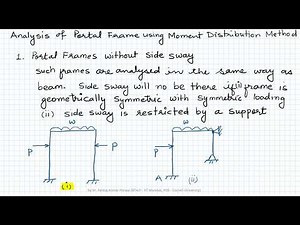 Analysis of Portal Frame using Moment Distribution Method
1. Portal Frames without Side Sway
Such frames are analysed in the same way as
beam. Side sway will no be there if (i) frame is
geometrically Symmetric with Symmetric loading
(ii) Side Sway is restricted by a support
w
w
P
P
P
A
(i)
(ii)